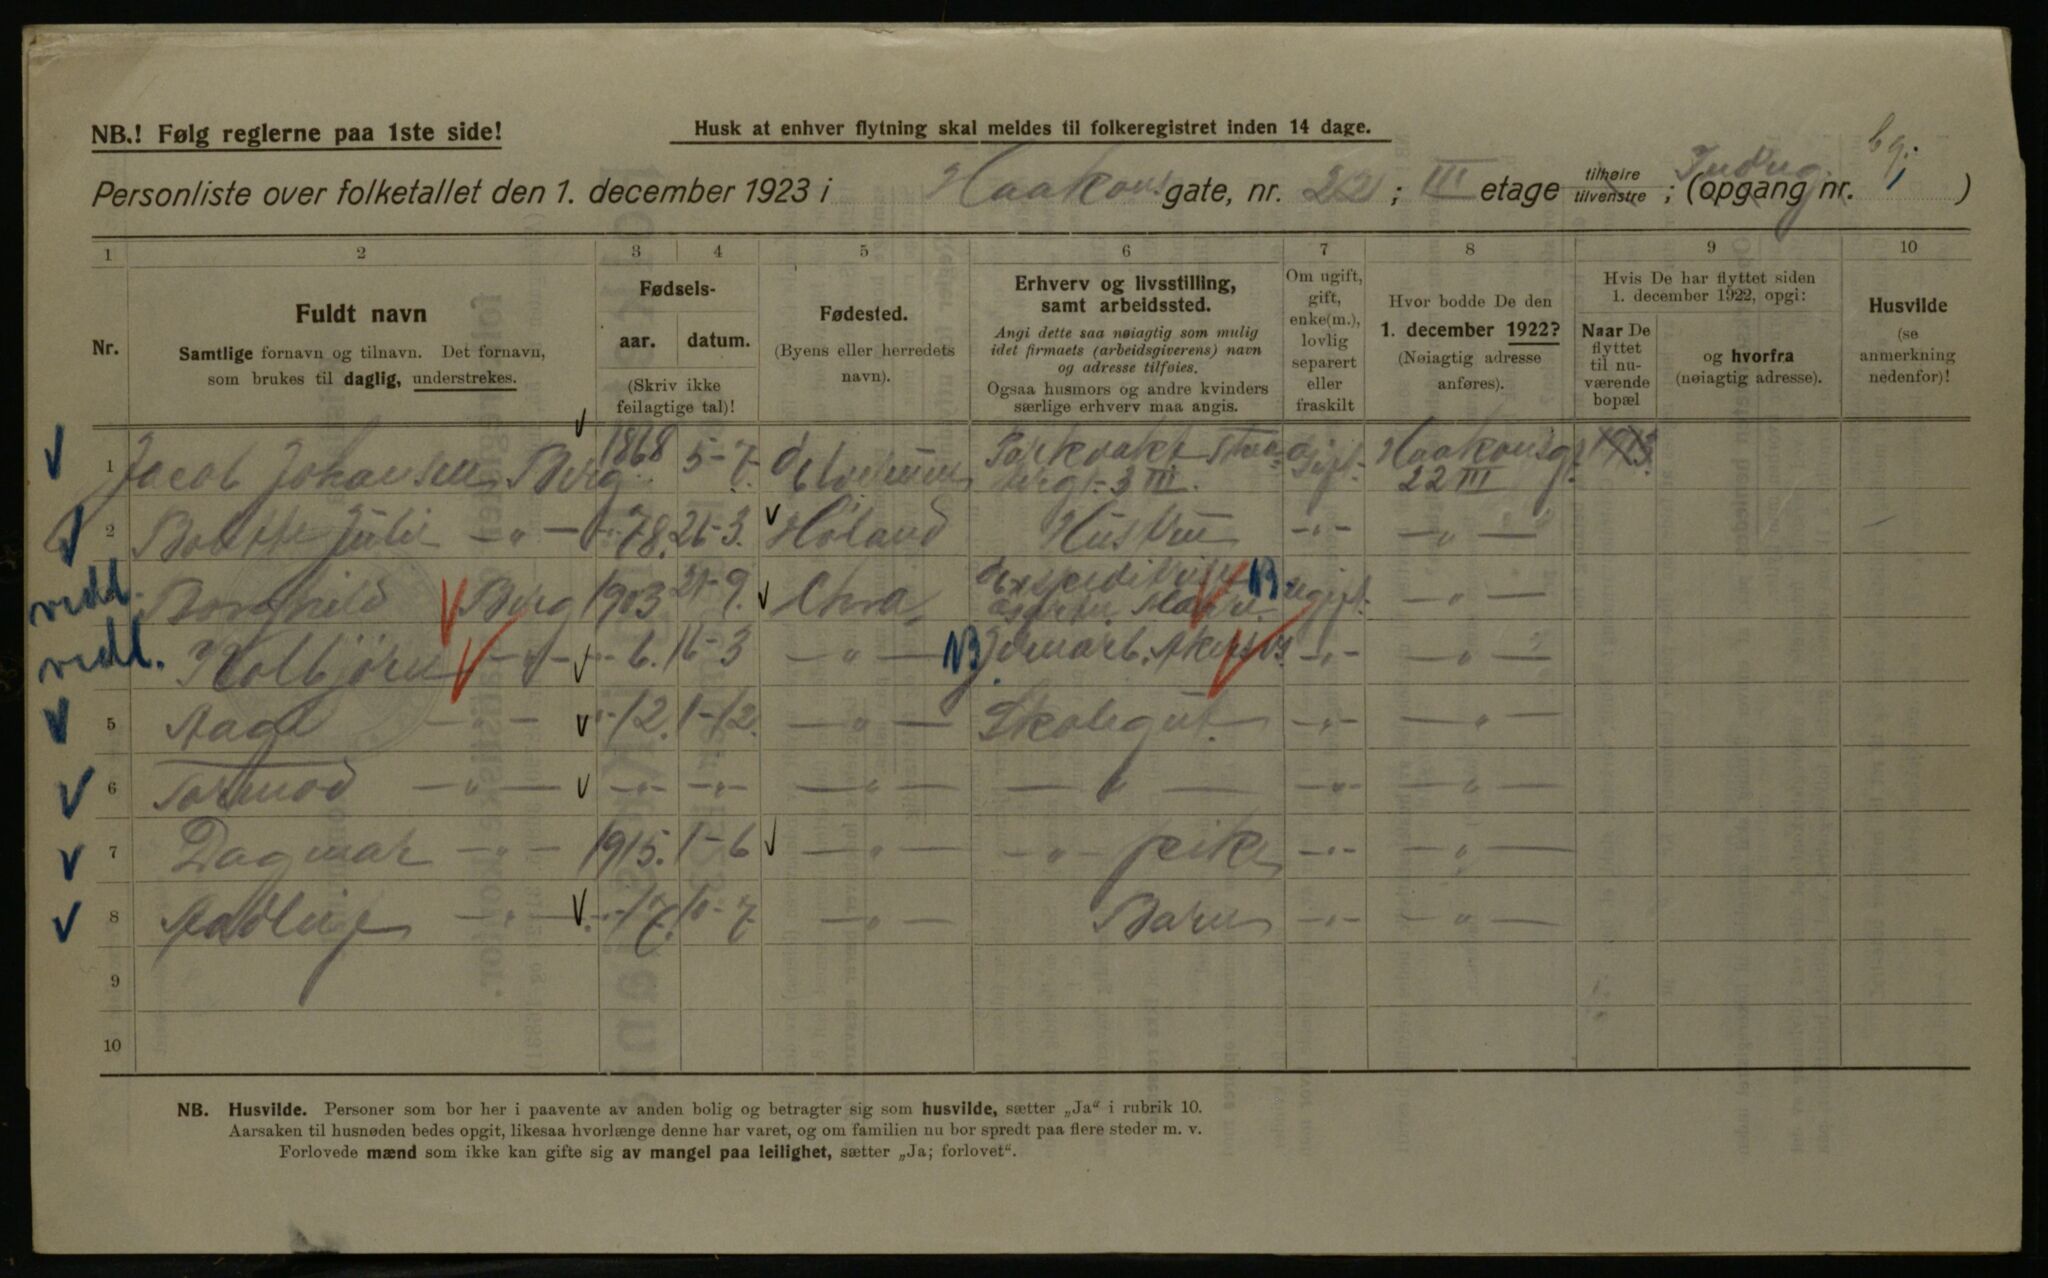 NB.! Følg reglerne paa 1ste side!
Husk at enhver flytning skal meldes til folkeregistret inden 14 dage.
Personliste over folketallet den 1. december 1923 i Haakons gate, nr. 22 ; III etage tilhøire tilvenstre ; (opgang nr. )
1 2 3 4 5 6 7 8 9 10
Nr.
Fuldt navn
Samtlige fornavn og tilnavn. Det fornavn,
som brukes til daglig, understrekes.
Fødsels-
aar. datum.
(Skriv ikke
feilagtige tal)!
Fødested.
(Byens eller herredets
navn).
Erhverv og livsstilling,
samt arbeidssted.
Angi dette saa nøiagtig som mulig
idet firmaets (arbeidsgiverens) navn
og adresse tilføies.
Ogsaa husmors og andre kvinders
særlige erhverv maa angis.
Om ugift,
gift,
enke(m.),
lovlig
separert
eller
fraskilt
Hvor bodde De den
1. december 1922?
(Nøiagtig adresse
anføres).
Hvis De har flyttet siden
1. december 1922, opgi:
Naar De
flyttet
til nu-
værende
bopæl
og hvorfra
(nøiagtig adresse).
Husvilde
(se
anmerkning
nedenfor)!
1 Jacob Johansen Berg 1868 5-7. Parkvakt Gift. Haakonsgt. 1913.
3 III. 22 III
2 Bolette Julie — „ — 78. 26-3. Høland Hustru — „ — — „ —
vedl. Borghild Berg 1903 21-9. Chra NB ugift. — „ —
vedl. Kolbjörn — „ — 6. 16-3 — „ — NB Jernarb. Akers — „ — — „ —
5 Aage — „ — 12. 1-12. — „ — Skolegut. — „ — — „ —
6 Tormod — „ — — „ — — „ — — „ — — „ — — „ — — „ —
7 Dagmar — „ — 1915. 1-6 — „ — — „ — pike — „ — — „ —
8 — „ — 17. 10-7 — „ — Barn — „ — — „ —
9
10
NB. Husvilde. Personer som bor her i paavente av anden bolig og betragter sig som husvilde, sætter „Ja“ i rubrik 10.
Aarsaken til husnøden bedes opgit, likesaa hvorlænge denne har varet, og om familien nu bor spredt paa flere steder m. v.
Forlovede mænd som ikke kan gifte sig av mangel paa leilighet, sætter „Ja; forlovet“.